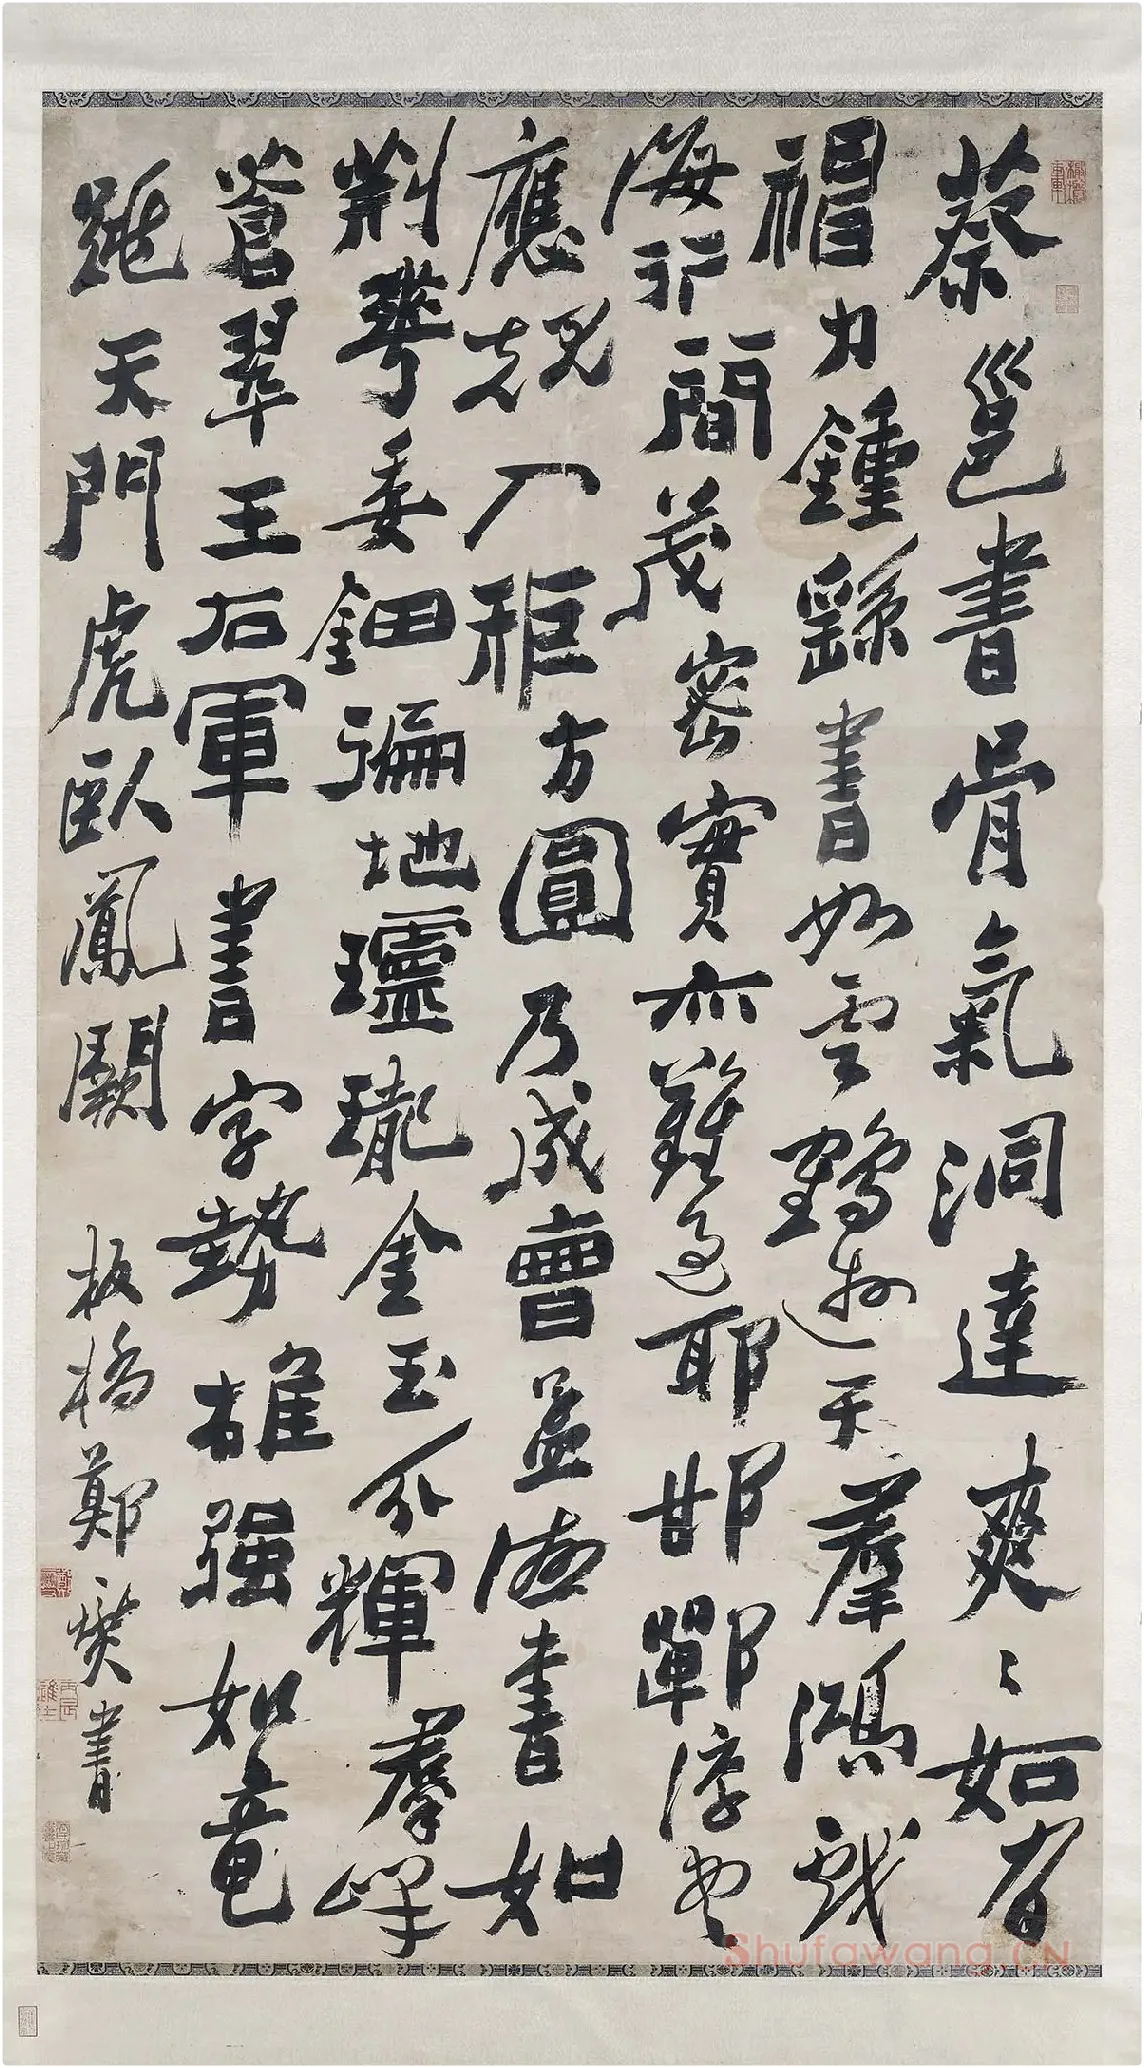 蔡邕書骨氣洞達爽〻如有
神力鍾繇書如雲鵠遊天羣鴻戲
海行間茂密實亦難過耶邯鄲淳書
應規入矩方圓乃成曹孟德書如
荆華委鈿遍地玲瓏金玉分輝羣峰
蒼翠王右軍書字勢雄强如竜
跳天門虎臥鳳闕 板橋鄭燮書
Shufawang.CN